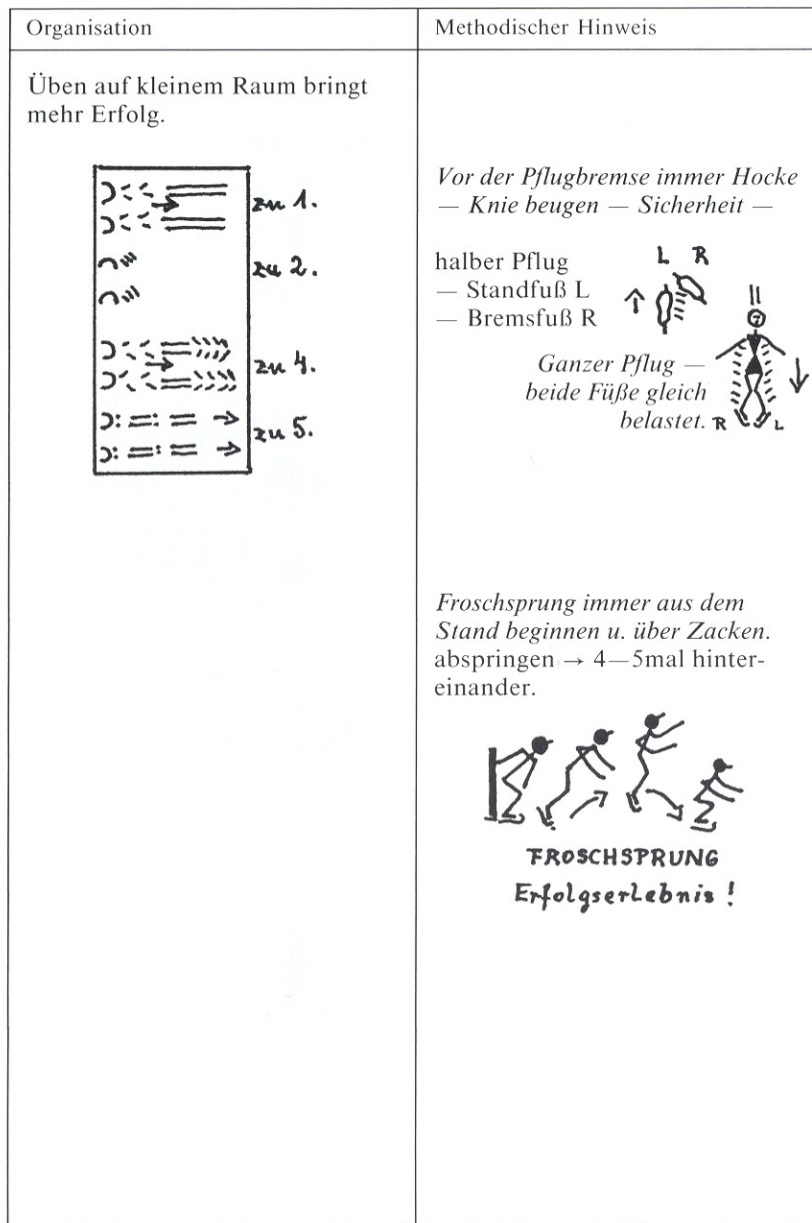 Organisation
Methodischer Hinweis
Üben auf kleinem Raum bringt
mehr Erfolg.
zu 1.
zu 2.
zu 4.
zu 5.
Vor der Pflugbremse immer Hocke
— Knie beugen — Sicherheit —
halber Pflug
— Standfuß L
— Bremsfuß R
L R
Ganzer Pflug —
beide Füße gleich
belastet.
R L
Froschsprung immer aus dem
Stand beginnen u. über Zacken.
abspringen → 4—5mal hinter-
einander.
FROSCHSPRUNG
Erfolgserlebnis!